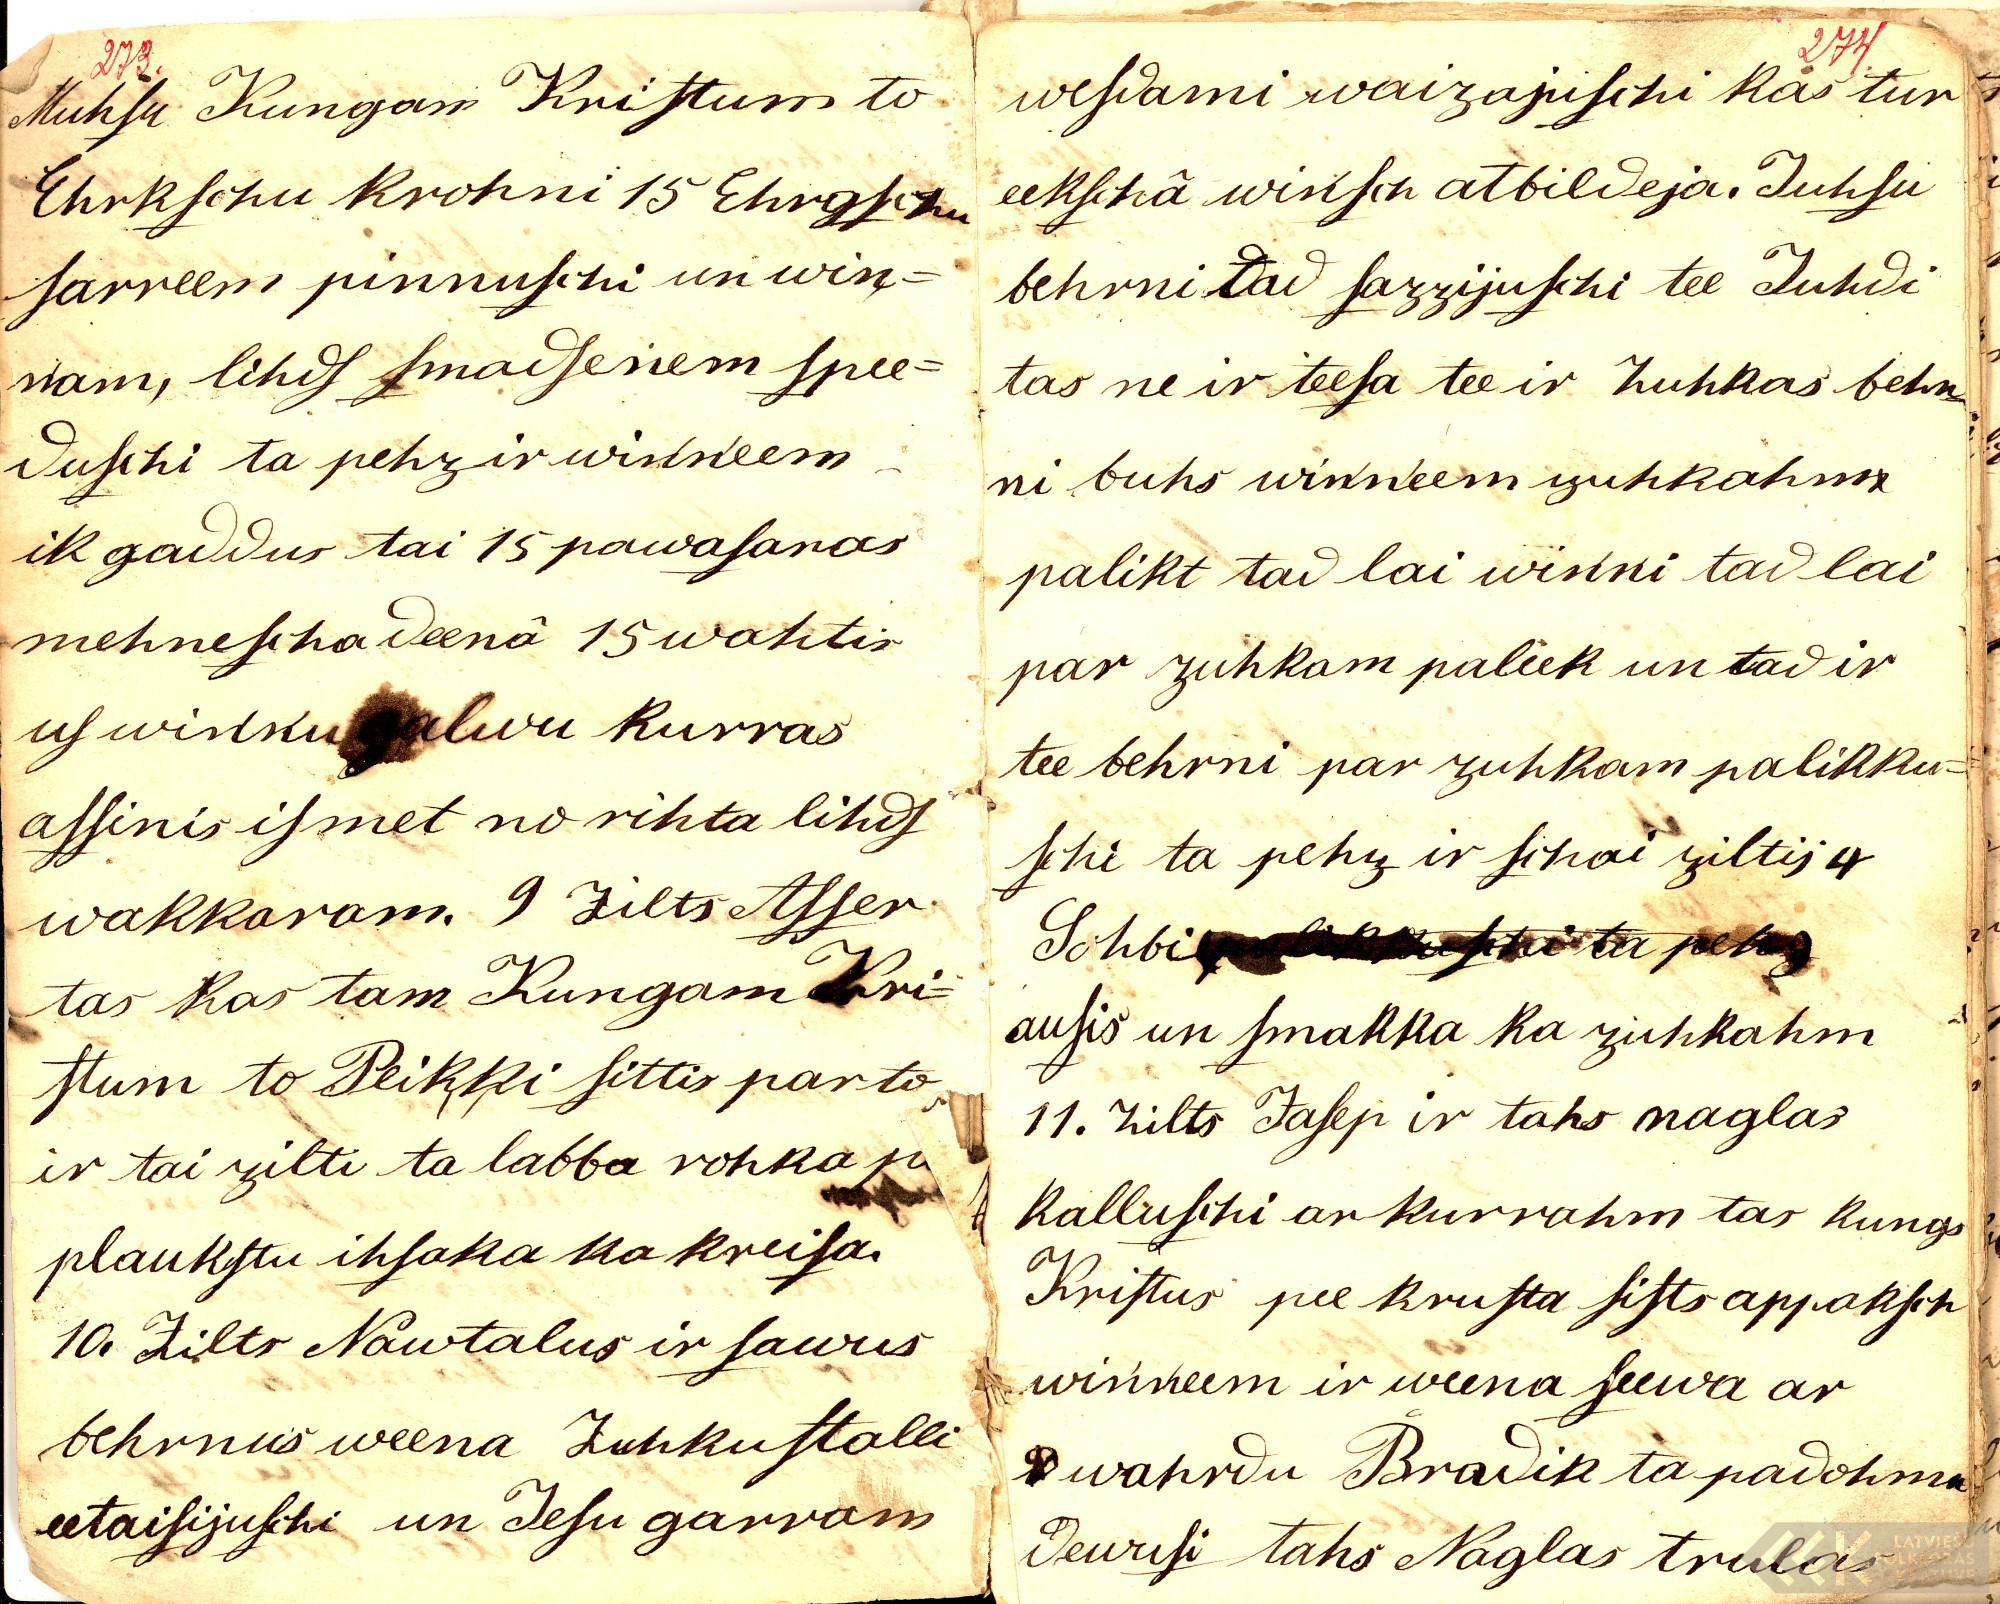 273.
Muhsu Kungam Kristum to
Ehrkschu krohni 15 Ehrgschu
sarreem pinnuschi un win=
nam, lihds smadsenem spee=
duschi ta pehz ir winneem
ik gaddus tai 15 pawasaras
mehnescha deenâ 15 wahtis
us winnu galwu kurras
assinis ismet no rihta lihds
wakkaram. 9 Zilts Asser
tas kas tam Kungam Kri=
stum to Peikki sittis par to
ir tai zilti ta labba rohka pa
plaukstu ihsaka ka kreisa.
10. Zilts Nawtalus ir sawus
behrnus weena Zuhku stalli
eetaisijuschi un Jesu garram
274.
wesdami waizajuschi kas tur
eekschâ winsch atbildeja. Juhsu
behrni tad sazzijuschi tee Juhdi
tas ne ir teesa tee ir Zuhkas behr=
ni buhs winneem zuhkahm
palikt tad lai winni tad lai
par zuhkam paleek un tad ir
tee behrni par zuhkam palikku=
schi ta pehz ir schai ziltij 4
Sohbi palikkuschi ta pehz
ausis un smakka ka zuhkahm
11. Zilts Jasep ir tahs naglas
kalluschi ar kurrahm tas kungs
Kristus pee krusta sists appaksch
winneem ir weena seewa ar
wahrdu Bradik ta padohmu
dewusi tahs Naglas trulas
LATVIEŠU
FOLKLORAS